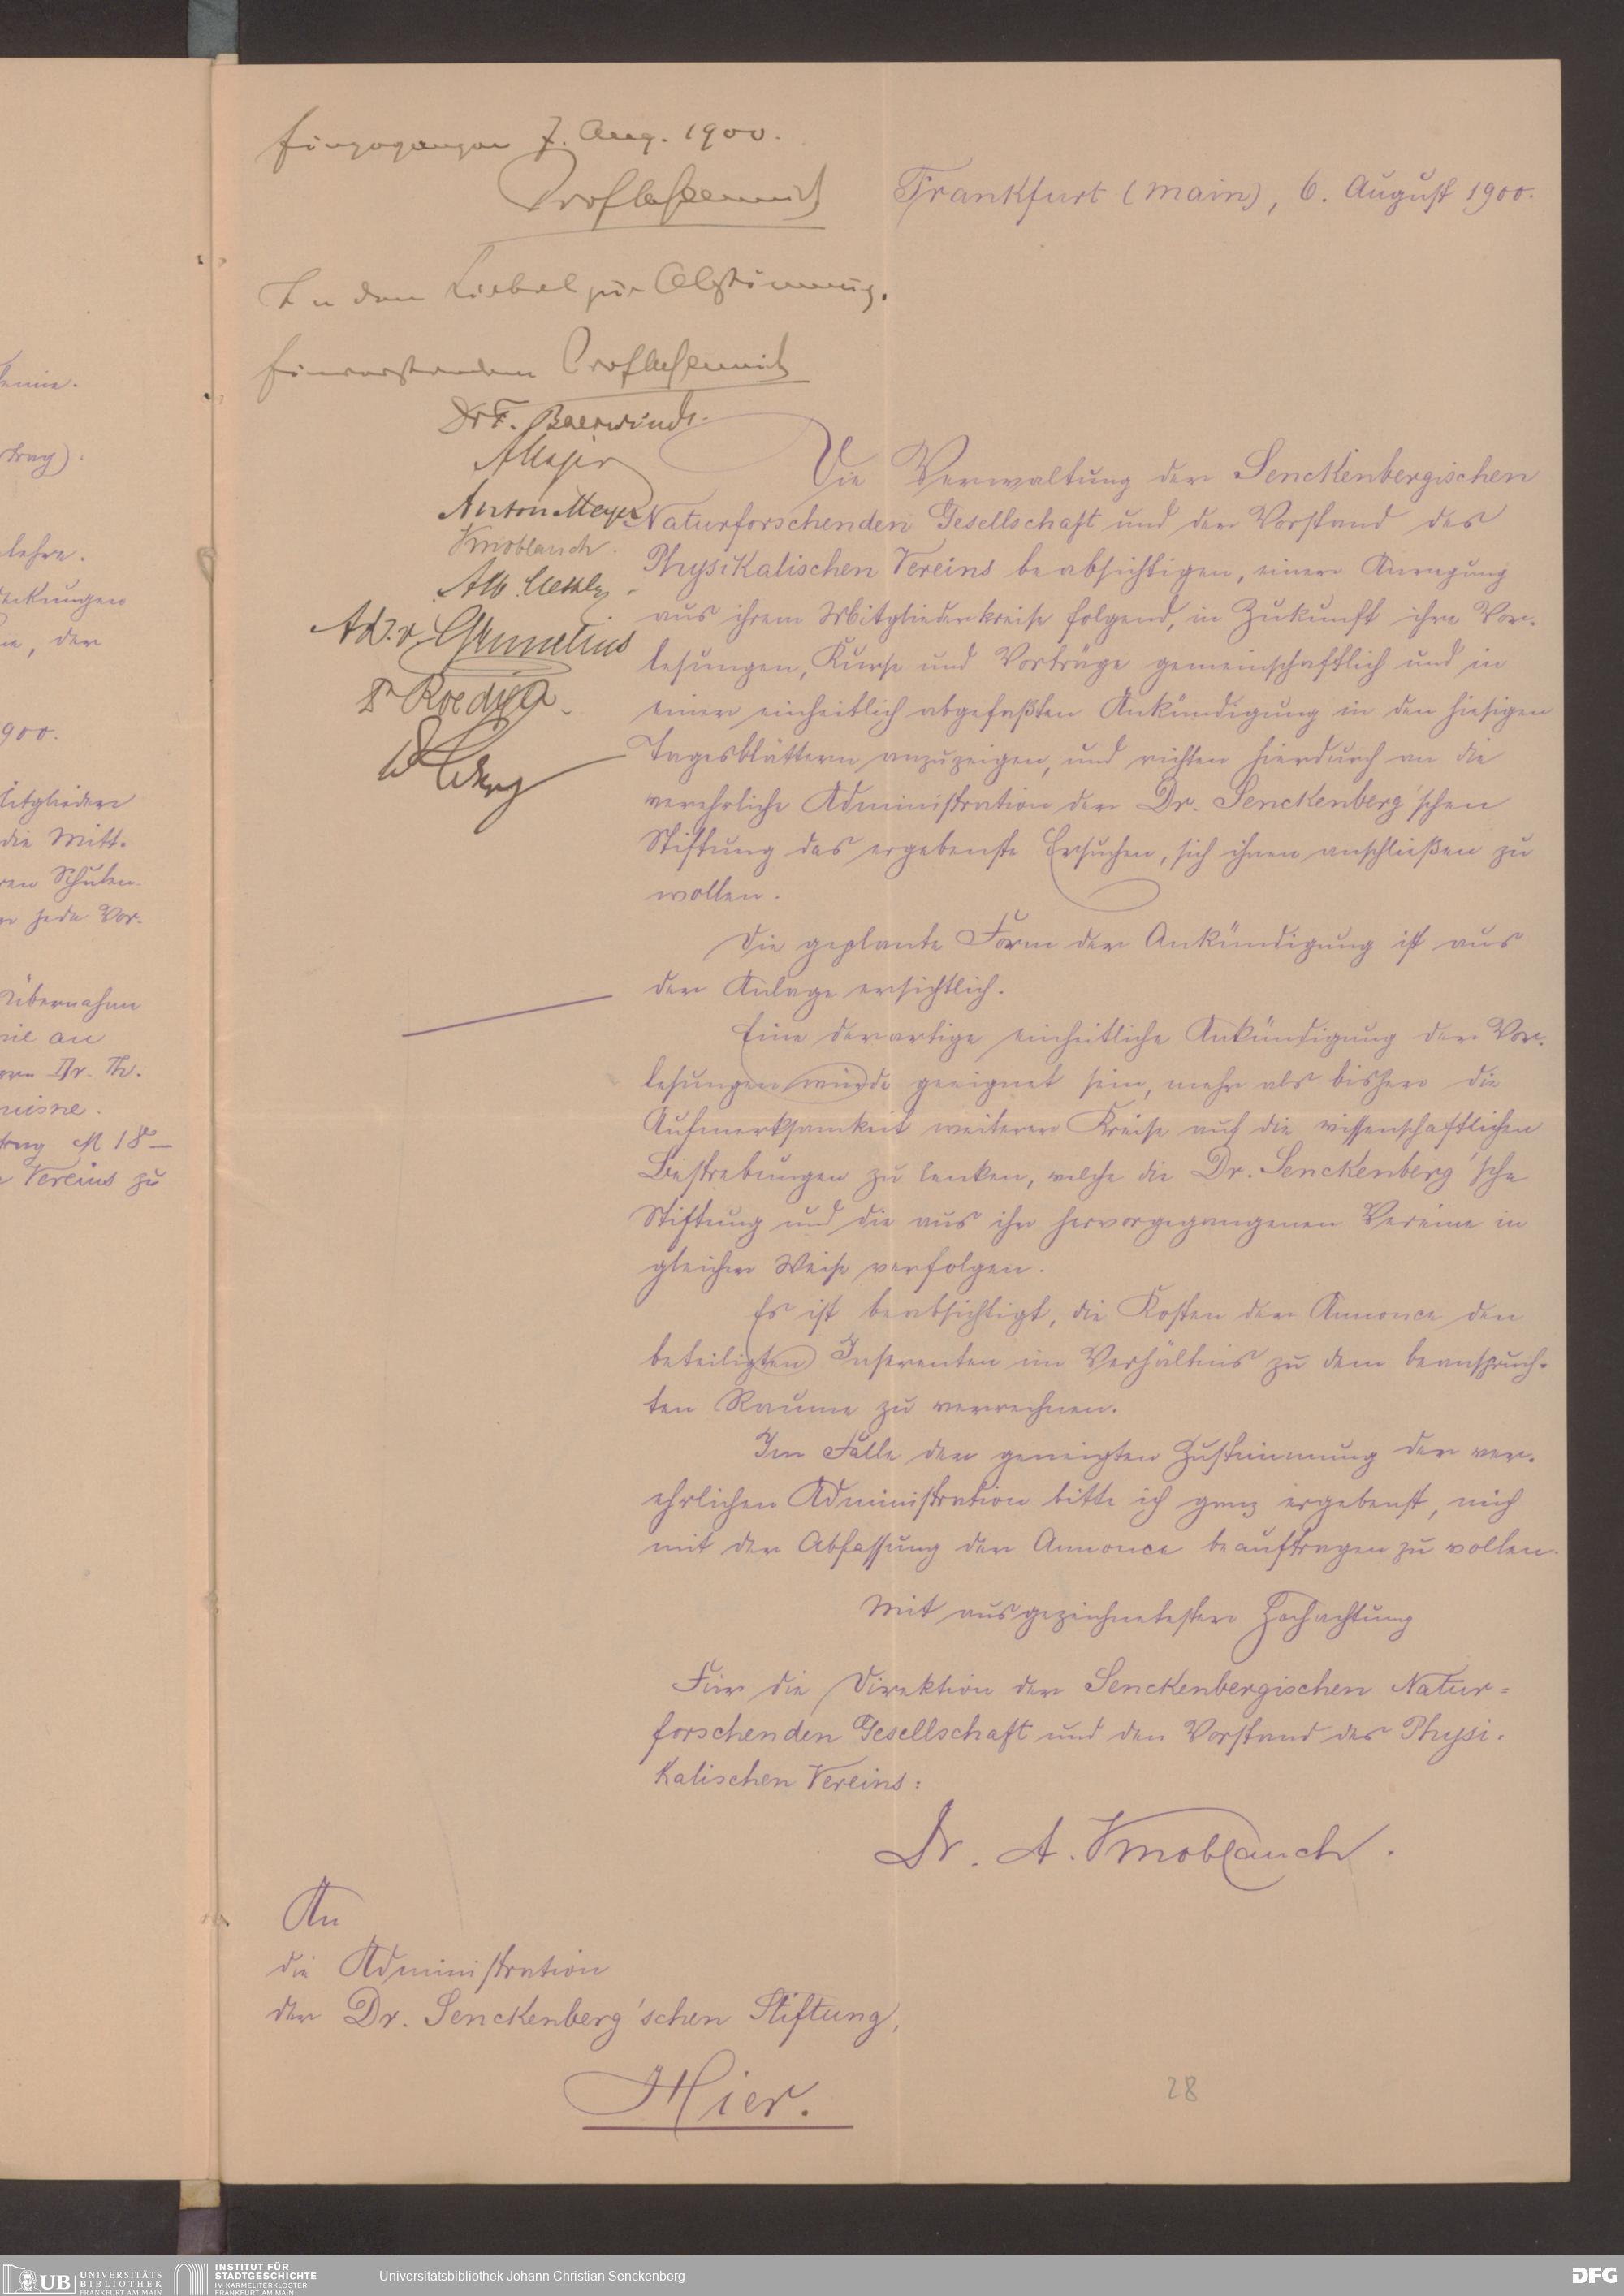 Eingegangen 7. Aug. 1900.
Frankfurt (Main), 6. August 1900.
In den Zirkel zur Abstimmung.
Einverstanden
Dr F. Baerwindt.
Anton Meyer
Knoblauch.
Ad. v. Grunelius
Dr Roediger
Die Verwaltung der Senckenbergischen
Naturforschenden Gesellschaft und der Vorstand des
Physikalischen Vereins beabsichtigen, einer Anregung
aus ihrem Mitgliederkreise folgend, in Zukunft ihre Vor-
lesungen, Kurse und Vorträge gemeinschaftlich und in
einer einheitlich abgefaßten Ankündigung in den hiesigen
Tagesblättern anzuzeigen, und richten hierdurch an die
verehrliche Administration der Dr. Senckenberg'schen
Stiftung das ergebenste Ersuchen, sich ihnen anschließen zu
wollen.
Die geplante Form der Ankündigung ist aus
der Anlage ersichtlich.
Eine derartige einheitliche Ankündigung der Vor-
lesungen würde geeignet sein, mehr als bisher die
Aufmerksamkeit weiterer Kreise auf die wissenschaftlichen
Bestrebungen zu lenken, welche die Dr. Senckenberg'sche
Stiftung und die aus ihr hervorgegangenen Vereine in
gleicher Weise verfolgen.
Es ist beabsichtigt, die Kosten der Annonce den
beteiligten Inserenten im Verhältnis zu dem beanspruch-
ten Raume zu verrechnen.
Im Falle der geneigten Zustimmung der ver-
ehrlichen Administration bitte ich ganz ergebenst, mich
mit der Abfassung der Annonce beauftragen zu wollen.
Mit ausgezeichnetester Hochachtung
Für die Direktion der Senckenbergischen Natur=
forschenden Gesellschaft und den Vorstand des Physi-
kalischen Vereins:
Dr. A. Knoblauch.
An
die Administration
der Dr. Senckenberg'schen Stiftung,
Hier.
28
UB UNIVERSITÄTS
BIBLIOTHEK
FRANKFURT AM MAIN
INSTITUT FÜR
STADTGESCHICHTE
IM KARMELITERKLOSTER
FRANKFURT AM MAIN
Universitätsbibliothek Johann Christian Senckenberg
DFG